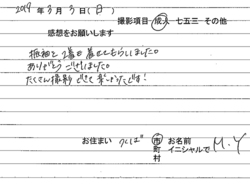 2019年3月3日(日)
撮影項目 成人 七五三 その他
感想をお願いします
振袖を2着も着せてもらいました。
ありがとうございました。
たくさん撮影できて幸せだったです!
お住まい つくば 市 お名前
町 イニシャルで M.Y
村